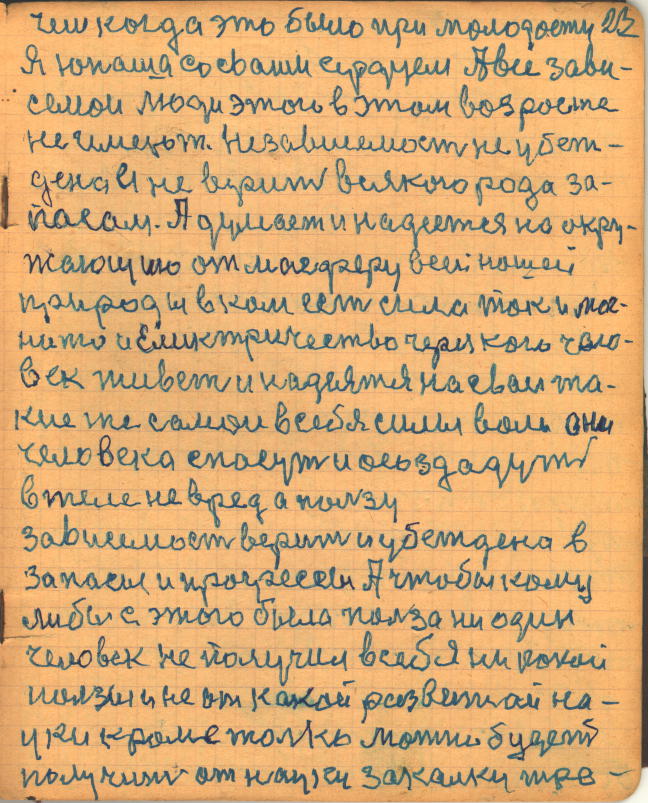 чем когда это было при молодосту 212
Я юнаша со сваим сердцем А все зави-
семои люди этого в этом возросте
не имеют. Независемост не убеж-
дена И не верит всякого рода за-
пасам. А думает и надеется на окру-
жающию отмасферу всей нашей
природы в ком ест сила ток и маг-
нито и Еликтричество через кого чело-
век живет и надеятся на сваи та-
кие же самои в себя силы воли они
человека спасут и осьздадут
в теле не вред а ползу
зависемост верит и убеждена в
запасы и прогрессы А чтобы кому
либы с этого была полза ни один
человек не получил в себя ни рокой
ползы и не от какой развитай на-
уки кроме толко можно будет
получит от науки закалку тре-